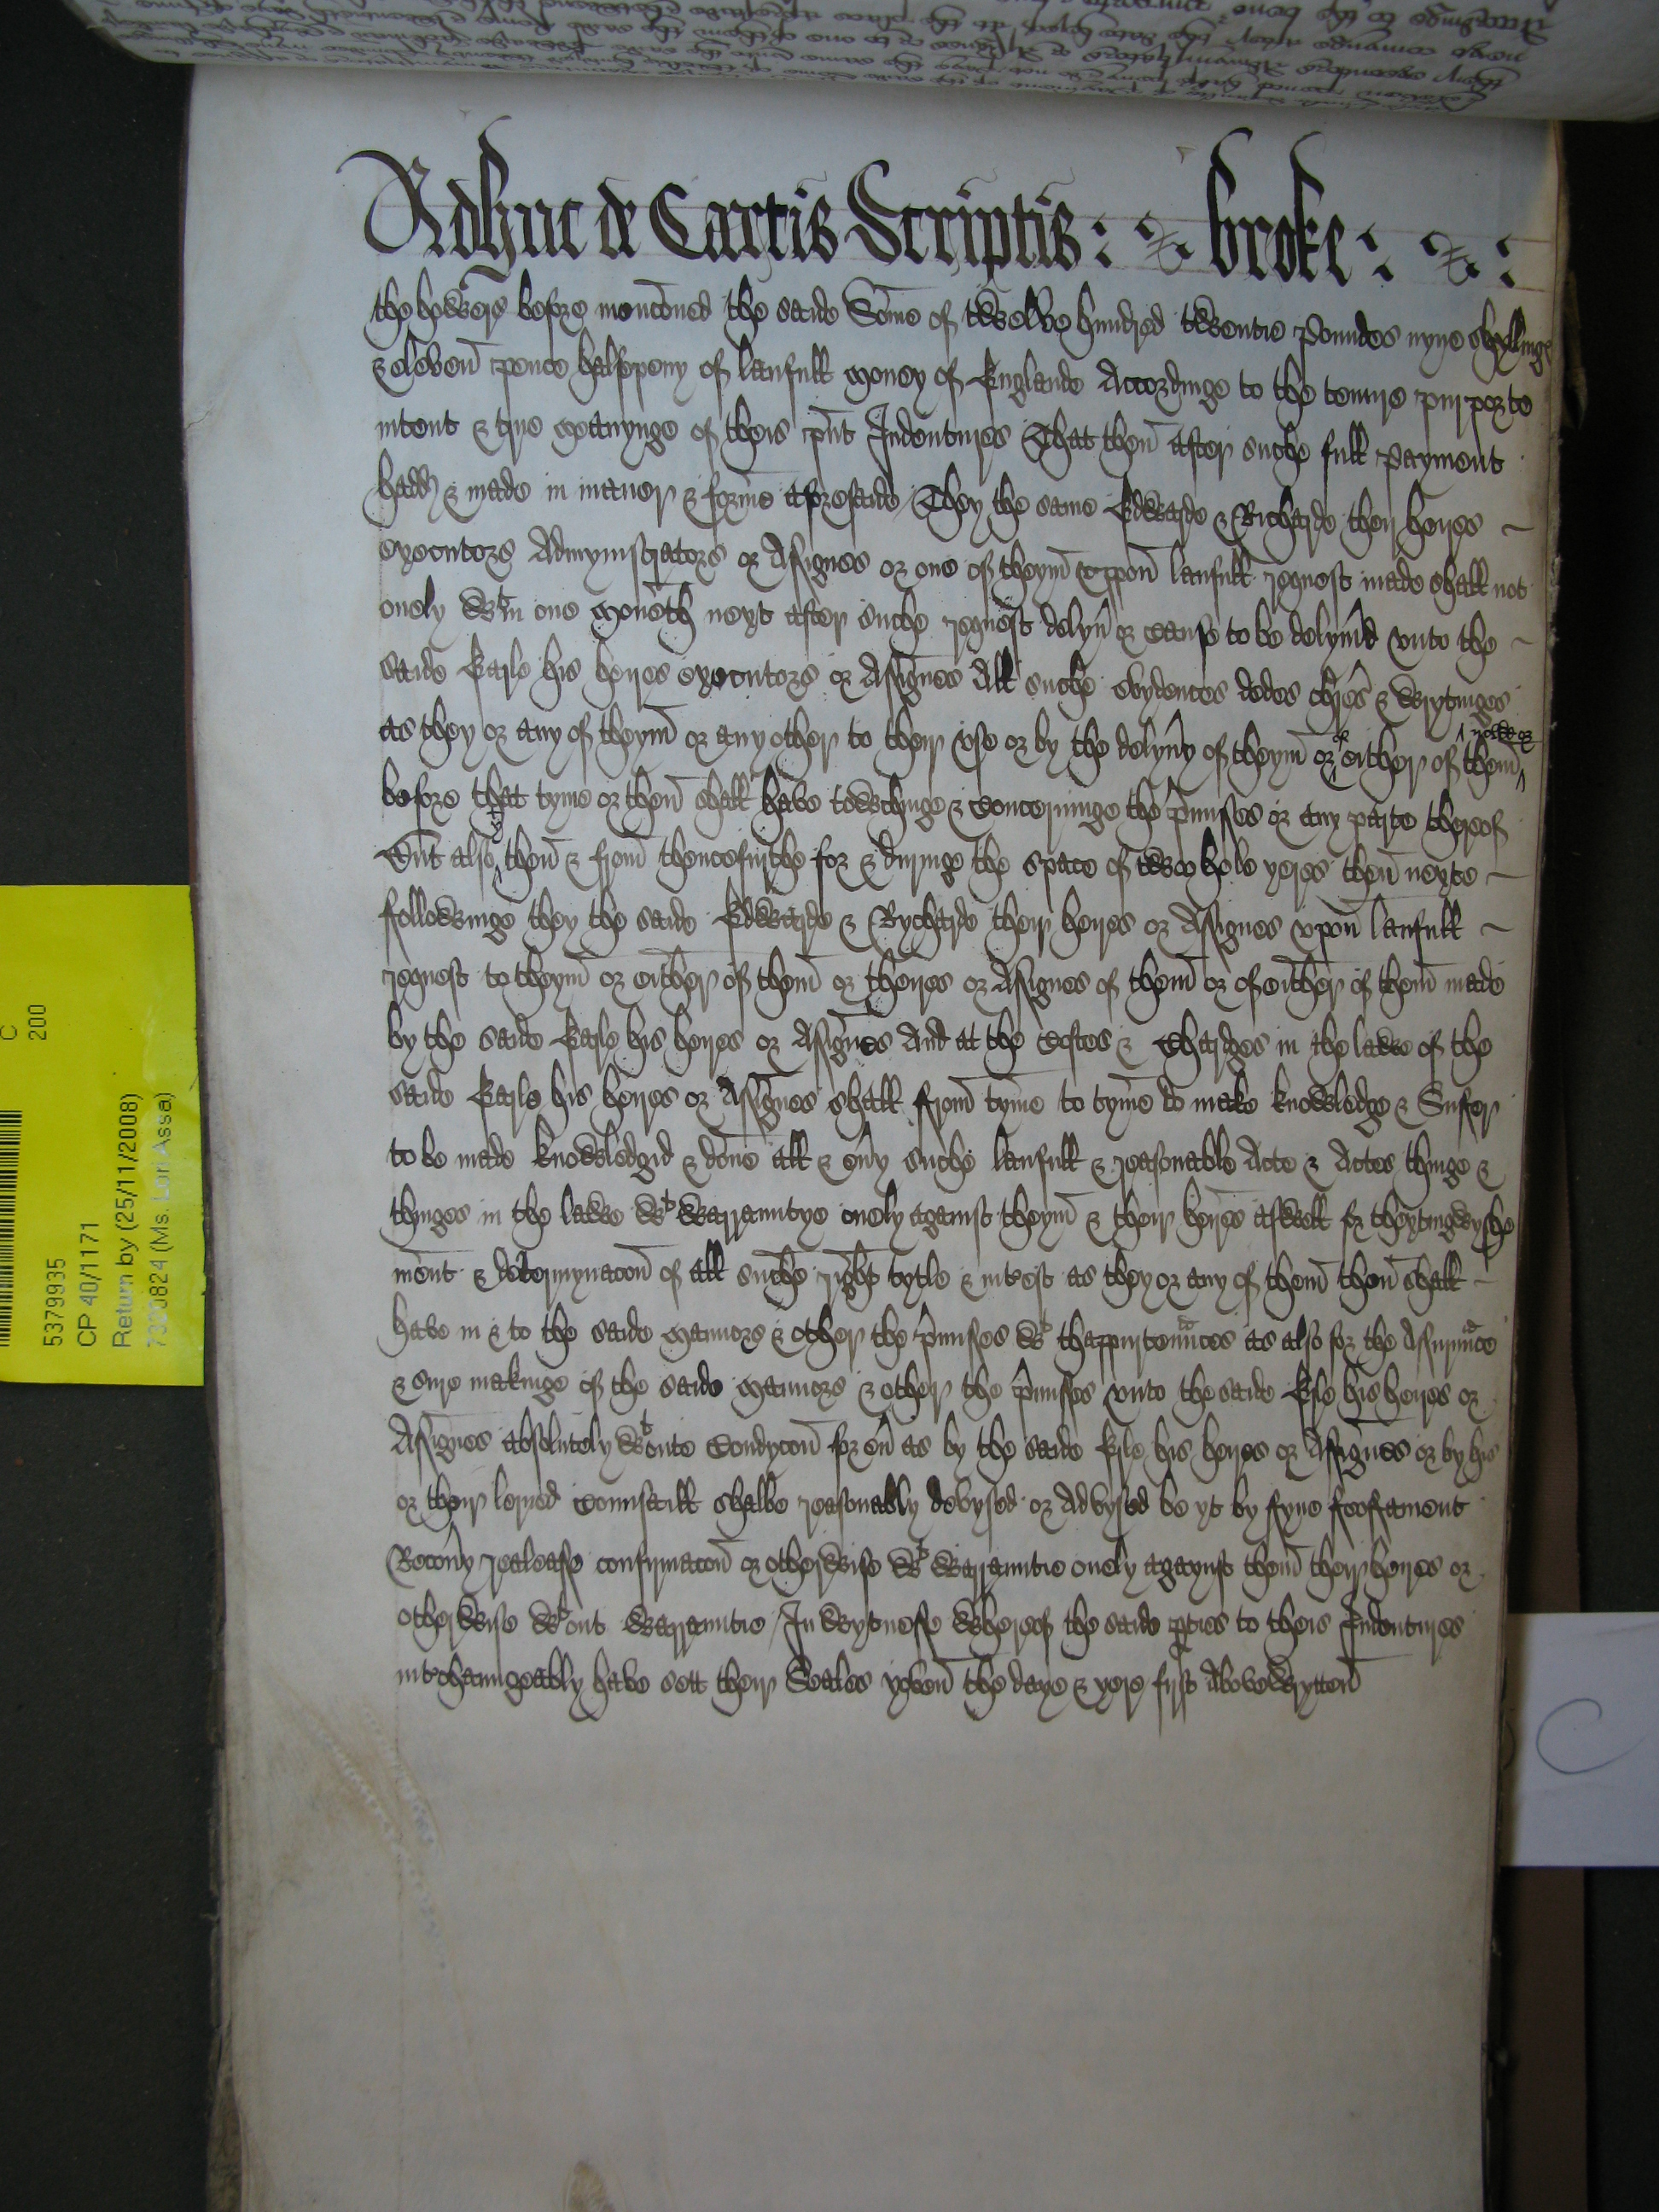 Adhuc de Cartis Scriptis : broke :
the howers before mencõned the saide Som̃e of twelve hundred twentie Poundes nyne shyllinges
& elevẽn pence halfpeny of laufull money of Englande Accordinge to the tenure purporte
intent & true meanynge of theis p̃nt Indentures That thẽn after suche full payment
hadd & made in maner & forme aforesaide / They the same Edwarde & Richarde their heires
executors Admynistrators or Assignes or one of theym̃ vppoñ laufull request made shall not
onely wtin one moneth next after suche request delyũ or cause to be delyũid vnto the
saide Earle his heires executors or Assignes All suche evydences dedes chres & wrytinges
as they or any of theym̃ or any other to their vse or by the delyũy of theym̃ or of either of them̃ nowe or
before that tyme or thẽn shall have towchynge & concerninge the p̃misses or any parte thereof
But also that thẽn & from̃ thencefurthe for & duringe the space of twoo hole yeres thẽn nexte
followinge they the saide Edwarde & Rycharde their heires or Assignes vpoñ laufull
request to theym̃ or either of them̃ or theires or Assignes of them̃ or of either of them̃ made
by the saide Earle his heires or Assignes And at the costes & Chardges in the lawe of the
saide Earle his heires or Assignes shall from̃ tyme to tyme do make knowledge & Suffer
to be made knowledgid & done all & eũy suche laufull & reasonable Acte & Actes thinge &
thynges in the lawe wt warrauntye onely against theym̃ & their heires aswell for thextingwyshe
ment & determynacoñ of all suche right tytle & intrest as they or any of them̃ thẽn shall
have in & to the saide mannors & other the p̃misses wt thappurtenñces as also for the Assurñce
& sure makinge of the saide mannors & other the p̃misses vnto the saide Erle his heires or
Assignes absolutely wtoute Condycoñ for eũ as by the saide Erle his heires or Assignes or by his
or their lerned Counsaill shalbe reasonably devysed or Advysed be yt by fyne feoffament
Recoũy realease confirmacoñ or otherwise wt warrauntie onely agaynst them̃ their heires or
otherwise wtout warrauntie / In wytnesse whereof the saide pties to theis Indentures
intrchaungeably have sett their Seales yevẽn the daye & yere first Abovewryttẽn
C
200
5379935
CP 40/1171
Return by (25/11/2008)
(Ms. Lori Assa)
C